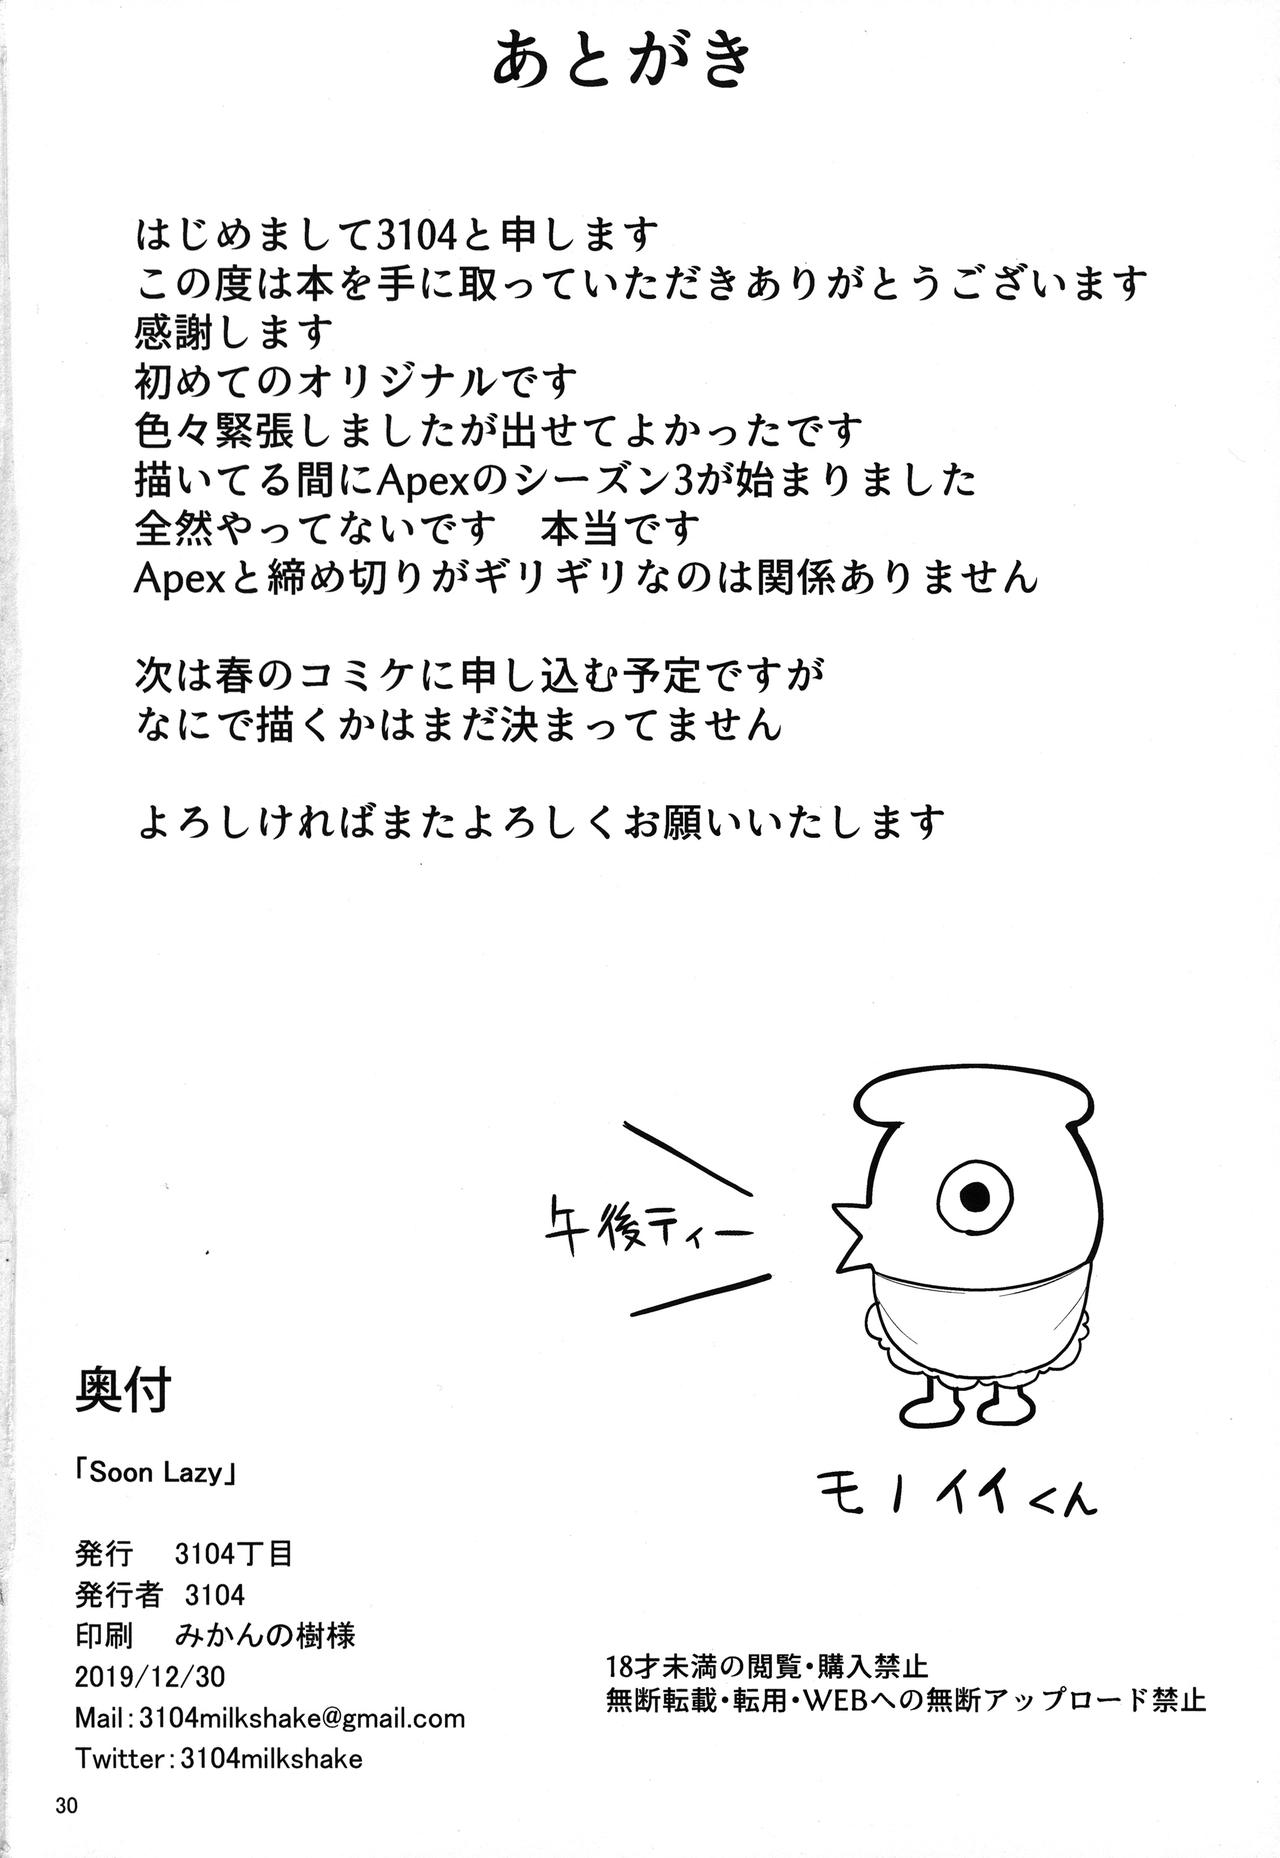 あとがき
はじめまして3104と申します
この度は本を手に取っていただきありがとうございます
感謝します
初めてのオリジナルです
色々緊張しましたが出せてよかったです
描いてる間にApexのシーズン3が始まりました
全然やってないです　本当です
Apexと締め切りがギリギリなのは関係ありません
次は春のコミケに申し込む予定ですが
なにで描くかはまだ決まってません
よろしければまたよろしくお願いいたします
午後ティー
モノイイくん
奥付
「Soon Lazy」
発行　3104丁目
発行者　3104
印刷　みかんの樹様
2019/12/30
Mail:3104milkshake@gmail.com
Twitter:3104milkshake
18才未満の閲覧・購入禁止
無断転載・転用・WEBへの無断アップロード禁止
30